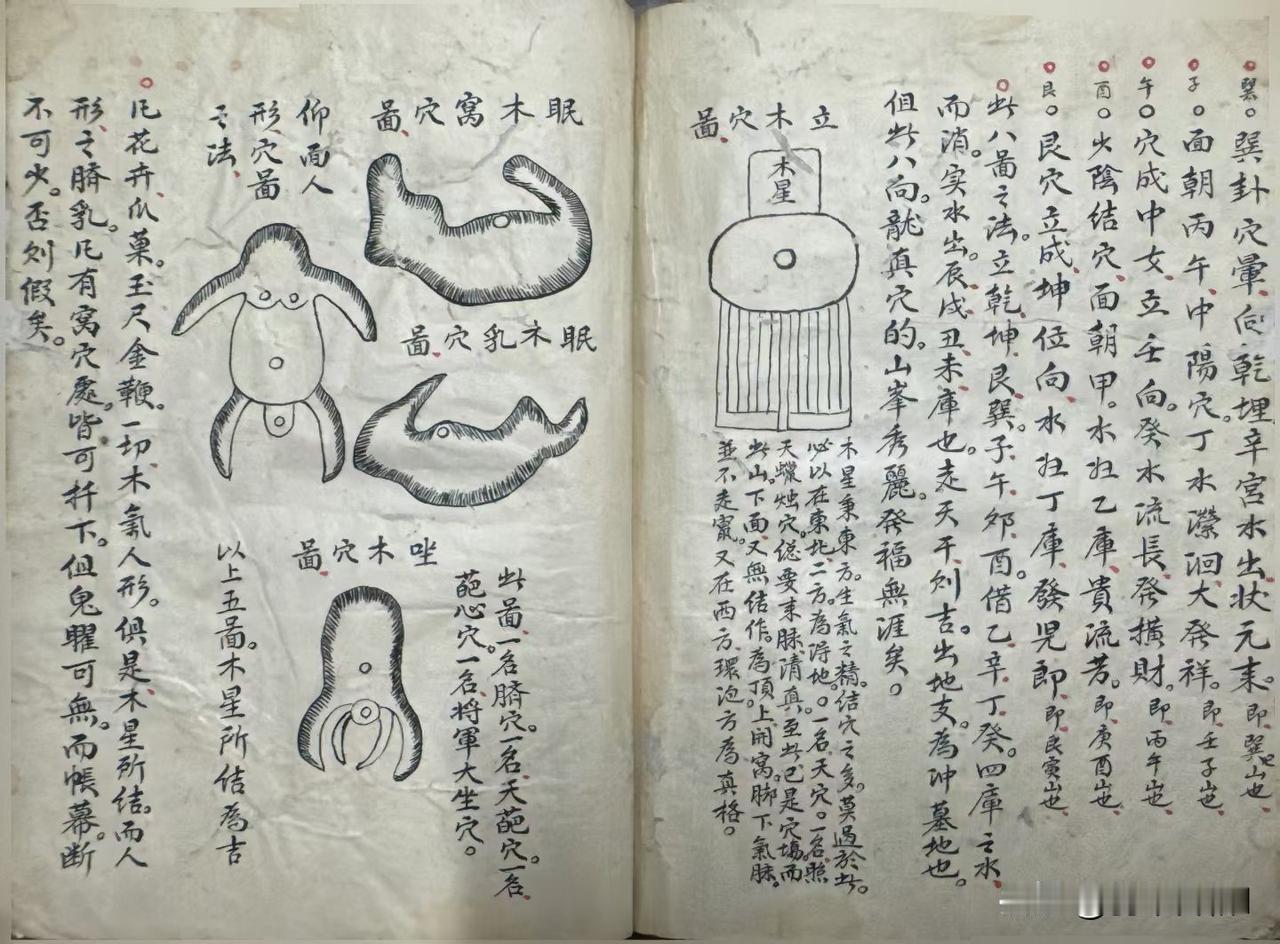 巽。巽卦穴暈向乾埋辛宮水出状元来。即巽巳山也
子。面朝丙午中陽穴。丁水濚洄大發祥。即壬子山也
午。穴成中女立壬向。癸水流長發橫財。即丙午山也
酉。少陰結穴面朝甲。水归乙庫貴流芳。即庚酉山也
艮。艮穴立成坤位向水归丁庫發児郎即艮寅山也
此八圖之法。立乾坤艮巽子午卯酉。借乙辛丁癸。四庫之水
而消。实水出。辰戍丑未庫也。走天干则吉。出地支。為冲墓地也。
但此八向。龍真穴的。山峯秀麗。發福無涯矣。
立木穴啚
木星
木星秉東方。生氣之精。結穴之多。莫過於此。
必以在東北二方。為得地。一名天穴。一名照
天蠟烛穴。緫要来脉清真。至此已是穴塲而
此山。下面又無結作。為頂上開窩。脚下氣脉。
並不走竄。又在西方環泡方為真格。
眠木窩穴啚
仰面人
形穴啚
之法
眠木乳穴啚
坐木穴啚
此啚一名臍穴。一名天葩穴。一名
葩心穴。一名将軍大坐穴。
以上五啚。木星所结為吉
凡花卉瓜菓。玉尺金鞭。一切木氣人形。俱是木星所结。而人
形之臍乳。凡有窩穴處。皆可扦下。但鬼曜可無。而帳幕。断
不可少。否则假矣。